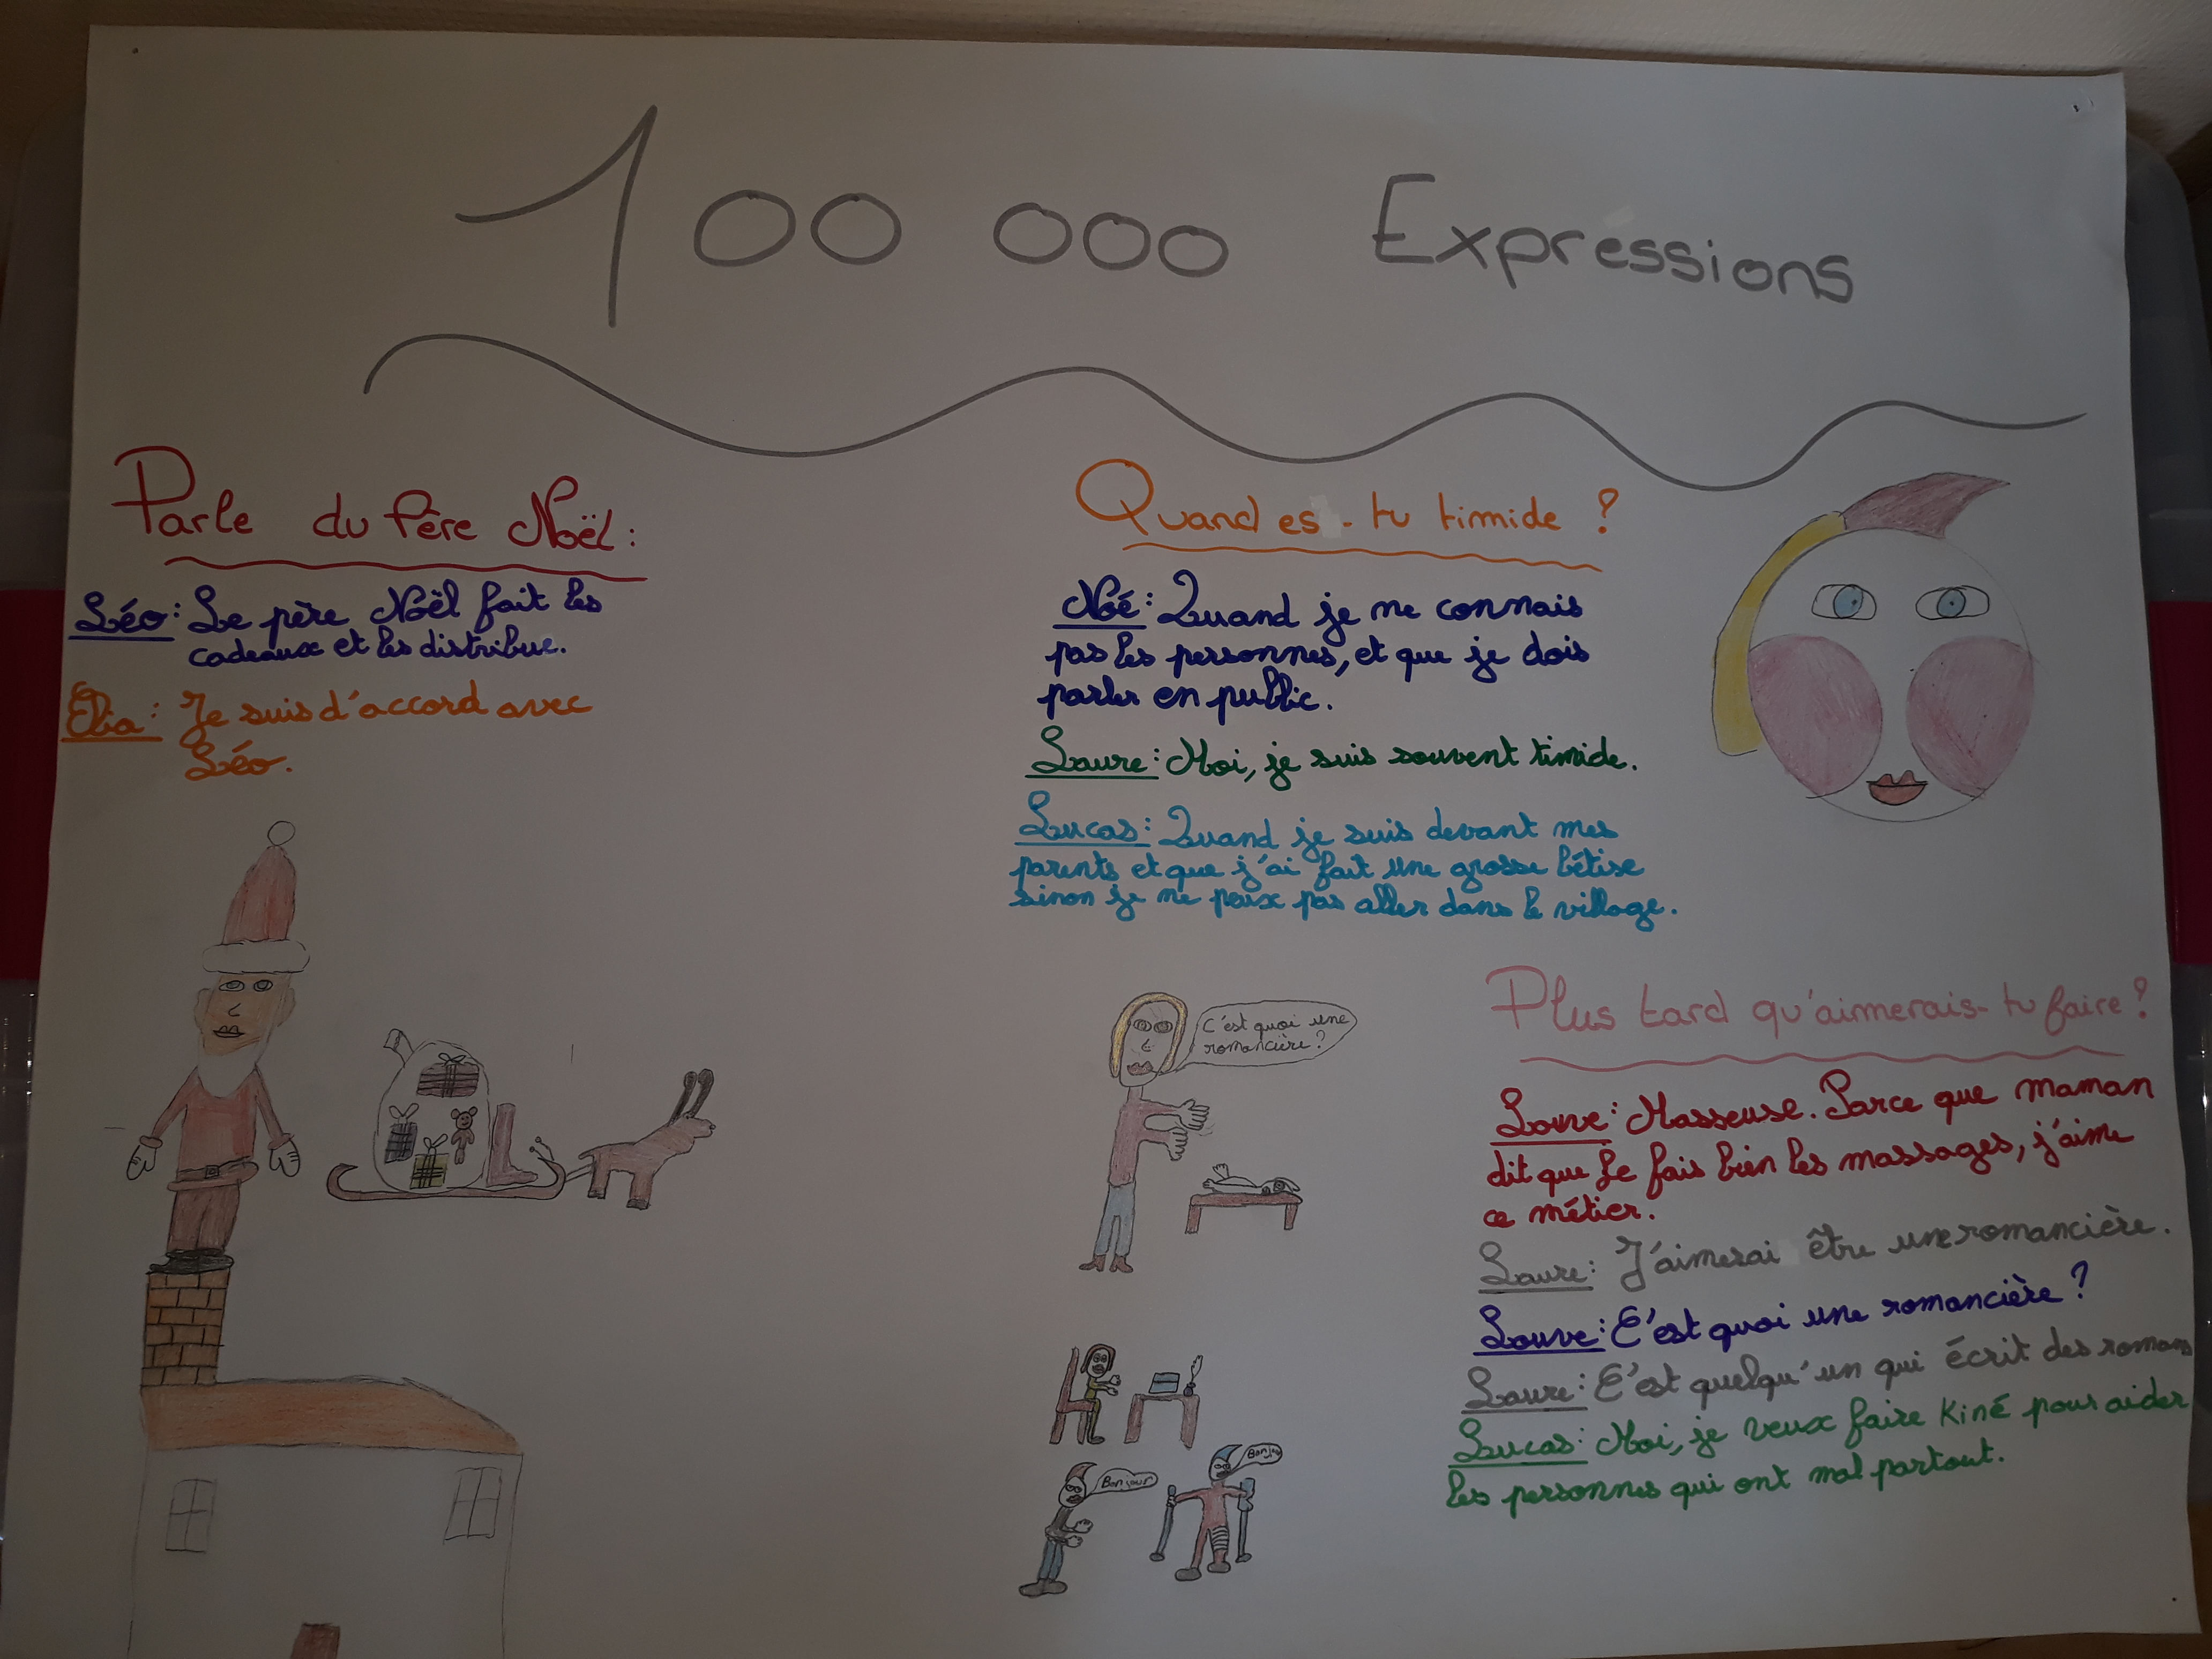 100 000 Expressions
Parle du Père Noël :
Léo : Le père Noël fait les
cadeaux et les distribue.
Elia : Je suis d'accord avec
Léo.
Quand es-tu timide ?
Noé : Quand je ne connais
pas les personnes, et que je dois
parler en public.
Laure : Moi, je suis souvent timide.
Lucas : Quand je suis devant mes
parents et que j'ai fait une grosse bêtise
sinon je ne peux pas aller dans le village.
C'est quoi une
romancière ?
Bonjour
Bonjour
Plus tard qu'aimerais-tu faire ?
Louve : Masseuse. Parce que maman
dit que je fais bien les massages, j'aime
ce métier.
Laure : J'aimerai être une romancière.
Louve : C'est quoi une romancière ?
Laure : C'est quelqu'un qui écrit des romans
Lucas : Moi, je veux faire kiné pour aider
les personnes qui ont mal partout.